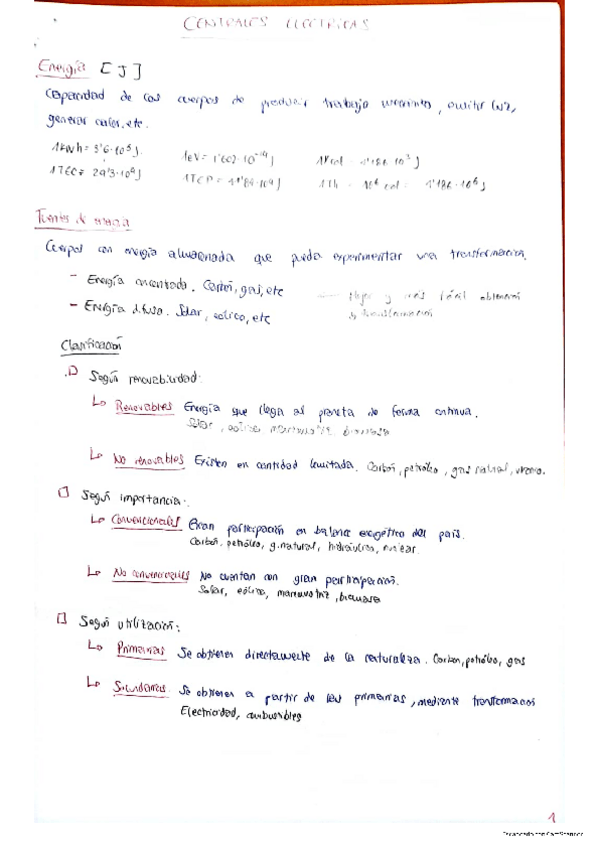 CENTRALES ELECTRICAS
Energía [J]
Capacidad de los cuerpos de producir trabajo mecánico, emitir luz,
generar calor, etc.
1 kWh = 3'6·10⁶ J
1 eV = 1'602·10⁻¹⁹ J
1 Kcal = 4'186·10³ J
1 TEC = 29'3·10⁹ J
1 TEP = 41'84·10⁹ J
1 Th = 10⁶ cal = 4'186·10⁶ J
Fuentes de energía
Cuerpos con energía almacenada que pueda experimentar una transformación.
- Energía concentrada. Carbón, gas, etc
Mejor y más fácil obtención
y transformación
- Energía difusa. Solar, eólica, etc
Clasificación
Según renovabilidad:
Renovables Energía que llega al planeta de forma continua.
Solar, eólica, mareomotriz, biomasa
No renovables Existen en cantidad limitada. Carbón, petróleo, gas natural, uranio.
Según importancia:
Convencionales Gran participación en balance energético del país.
Carbón, petróleo, g.natural, hidráulica, nuclear.
No convencionales No cuentan con gran participación.
Solar, eólica, mareomotriz, biomasa
Según utilización:
Primarias Se obtienen directamente de la naturaleza. Carbón, petróleo, gas
Secundarias Se obtienen a partir de las primarias, mediante transformación
Electricidad, combustibles
1
Escaneado con CamScanner